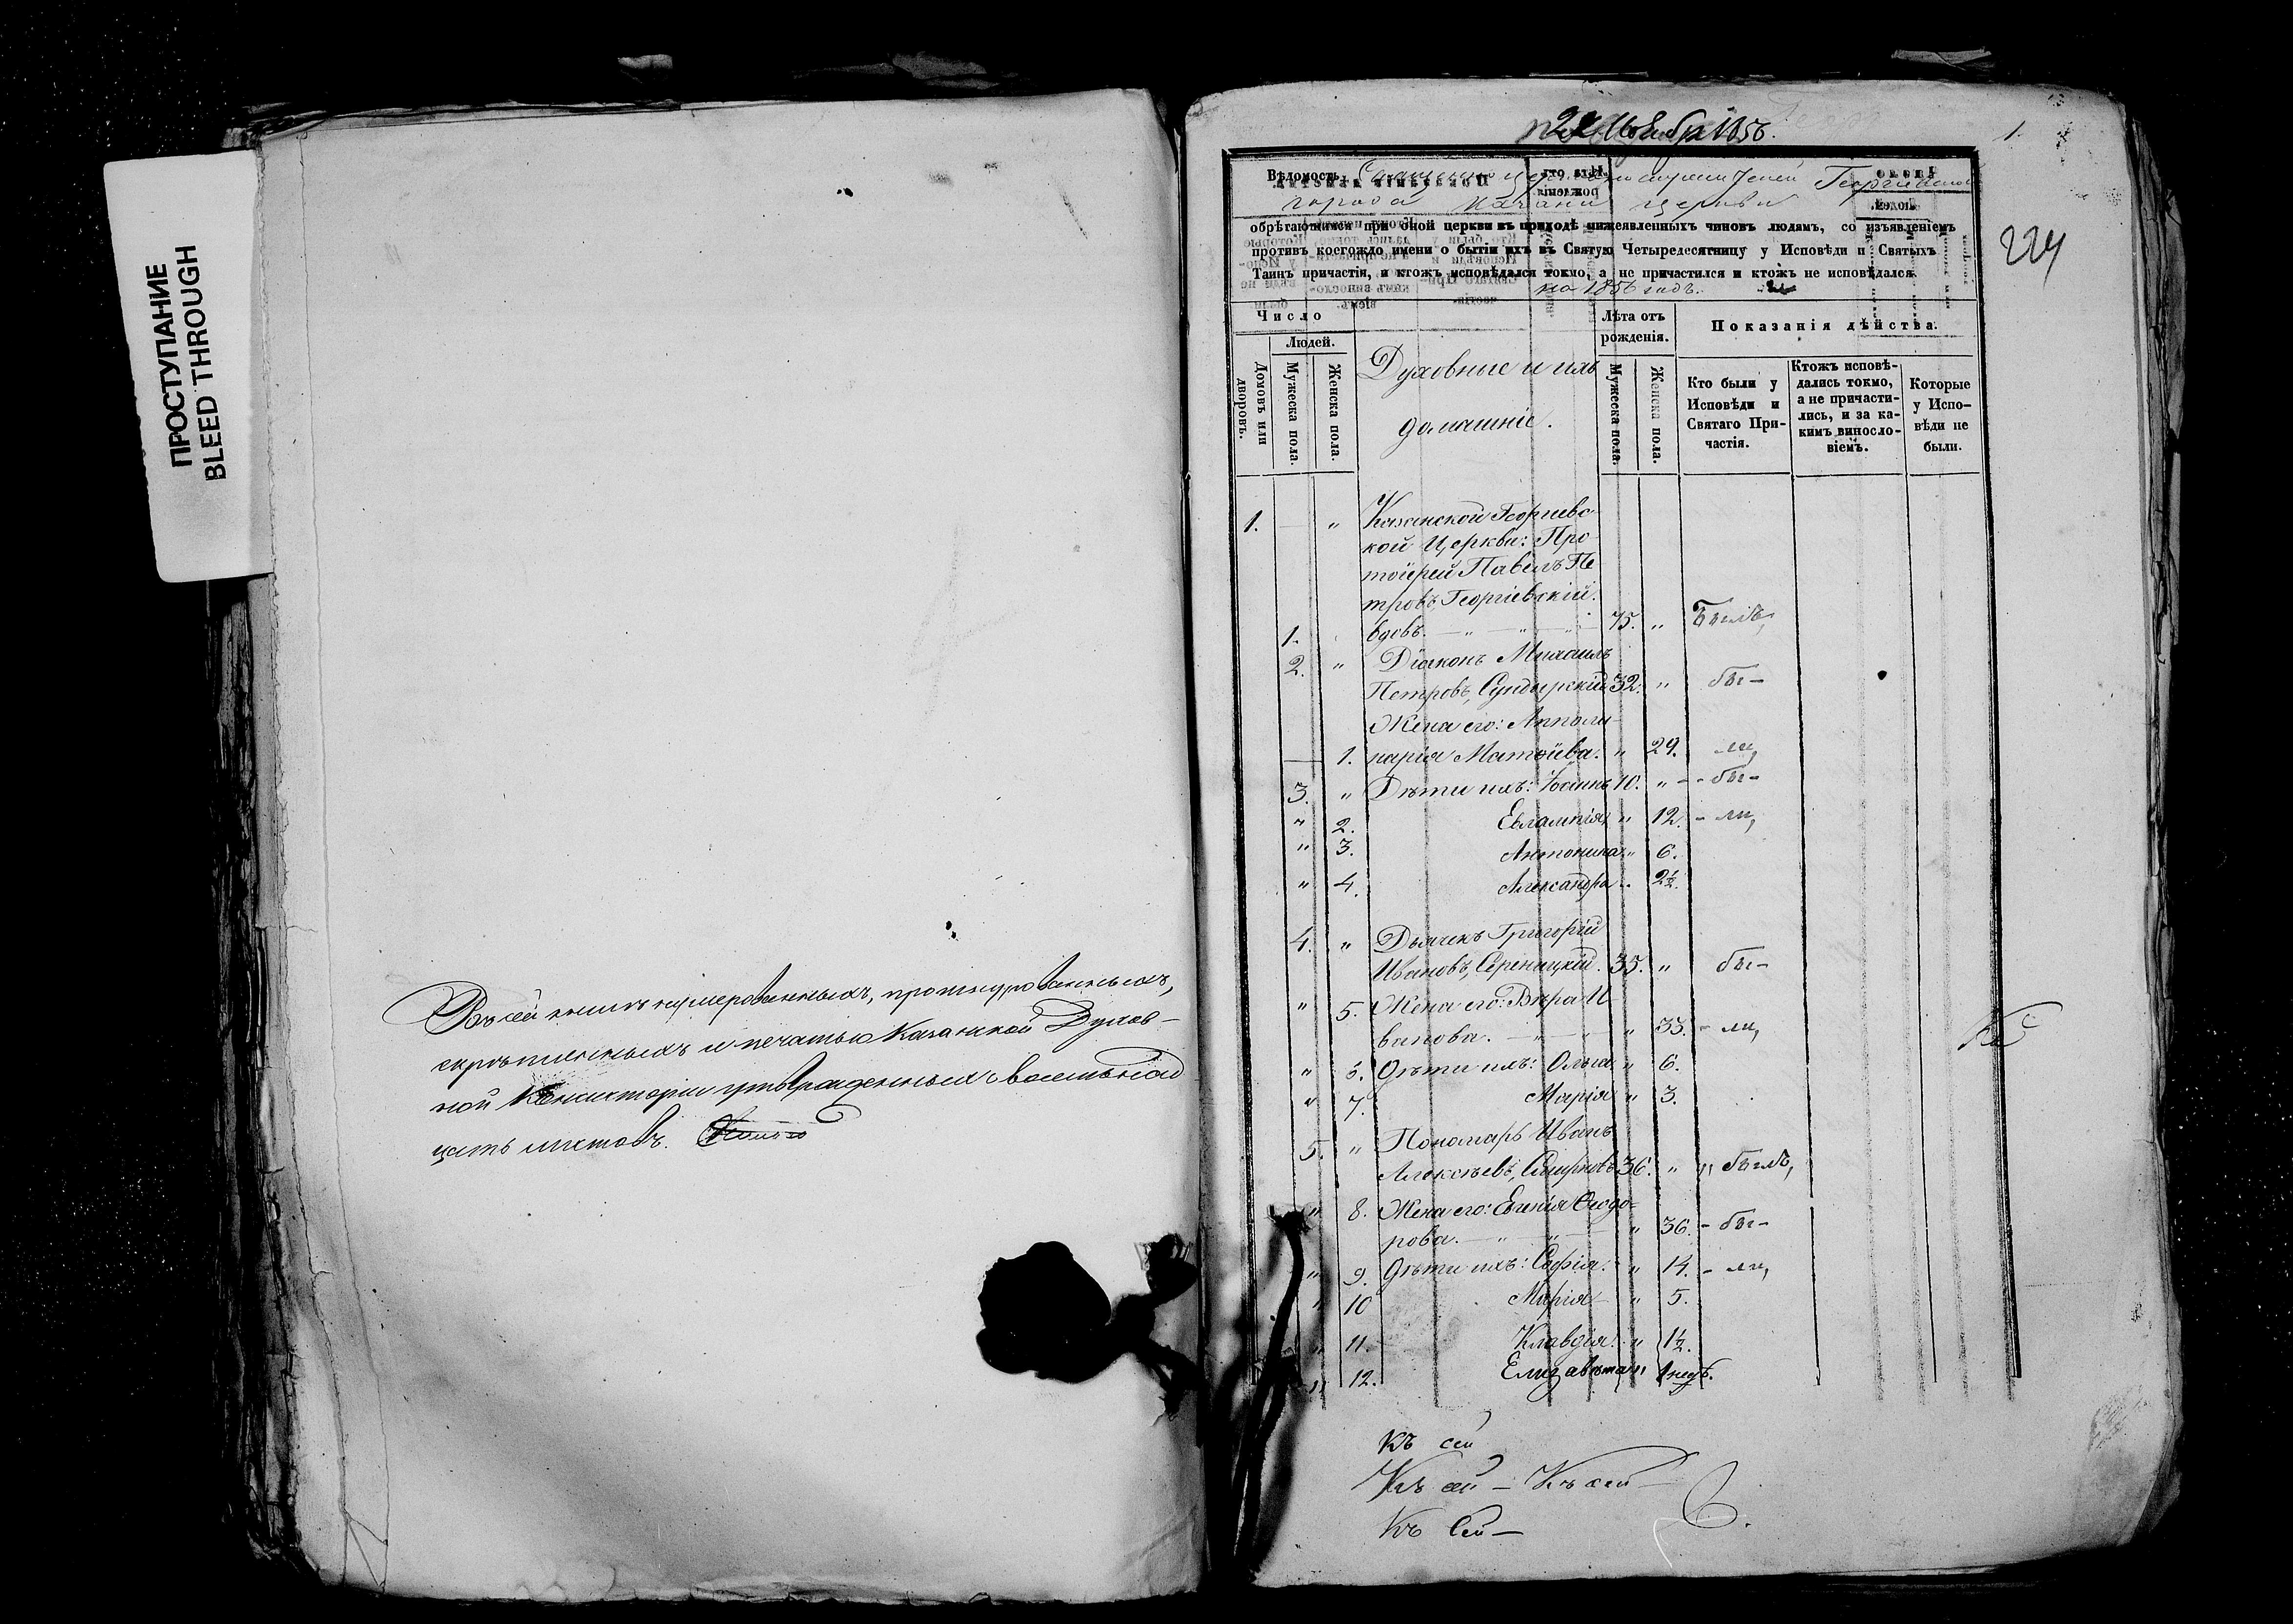 ПРОСТУПАНИЕ
BLEED THROUGH
Въ сей книгѣ нумерованныхъ, прошнурованныхъ,
скрѣпленныхъ и печатью Казанской Духов-
ной Консисторіи утвержденныхъ восемьнад
цать листовъ.
1856.
1.
224
Вѣдомость Георгіевской
города Казани церкви
обрѣтающимся при оной церкви въ приходѣ нижеявленныхъ чиновъ людямъ, со изъявленіемъ
противъ коегождо имени о бытіи ихъ въ Святую Четыредесятницу у Исповѣди и Святыхъ
Таинъ причастія, и ктожъ исповѣдался токмо, а не причастился и ктожъ не исповѣдался.
на 1856 годъ.
Число
Людей.
Домовъ или дворовъ.
Мужеска пола.
Женска пола.
Духовные и ихъ
домашніе.
Лѣта отъ
рожденія.
Мужеска пола.
Женска пола.
Показанія дѣйства.
Кто были у
Исповѣди и
Святаго При-
частія.
Ктожъ исповѣ-
дались токмо,
а не причасти-
лись, и за ка-
кимъ винословіемъ.
Которые
у Испо-
вѣди не
были.
1. — " Казанской Георгіевс
кой Церкви: Про
тоіерей Павелъ Пе
тровъ, Георгіевскій.
1. вдовъ. — " — " — " — 75. " Былъ,
2. " Діаконъ Михаилъ
Петровъ, Сундырскій 32. " бы-
Жена его: Апполи-
— 1. нарія Матѳіева. " 29. ли,
3. " Дѣти ихъ: Іоаннъ 10. " - бы-
" 2. Евлампія " 12. - ли,
" 3. Антонина " 6.
" 4. Александра " 2½.
4. " Дьячекъ Григорій
Ивановъ, 35. " бы-
" 5. Жена его: Вѣра И
ванова. — " — " 33. - ли,
" 6. Дѣти ихъ: Ольга " 6.
" 7. Марія " 3.
5. " Пономарь Иванъ
Алексѣевъ, Смирновъ 36. " " былъ,
" 8. Жена его: Евгенія Ѳеодо-
рова. — " — " — " 36. - бы-
" 9. Дѣти ихъ: Софія. " 14. - ли,
" 10 Марія " 5.
" 11. Клавдія. " 1½.
" 12. Елизавета " 1 нед.
Къ сей
Къ сей — Къ сей —
Къ Сей —